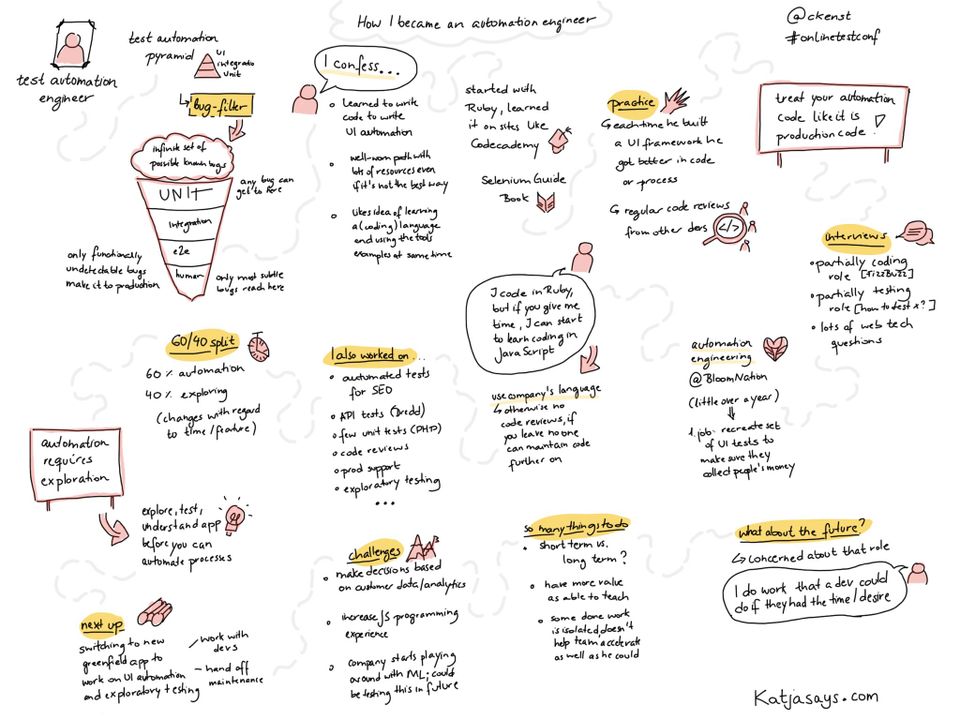 How I became an automation engineer
@ckenst
#onlinetestconf
test automation
engineer
test automation
pyramid
UI
integratio
unit
bug-filter
infinite set of
possible known bugs
UNIT
integration
e2e
human
any bug can
get to here
only functionally
undetectable bugs
make it to production
only most subtle
bugs reach here
I confess...
Learned to write
code to write
UI automation
well-worn path with
lots of resources even
if it's not the best way
likes idea of learning
a (coding) language
and using the tools
examples at same time
started with
Ruby, learned
it on sites like
Codecademy
Selenium Guide
Book
practice
each time he built
a UI framework he
got better in code
or process
regular code reviews
from other devs
</>
treat your automation
code like it is
production code!
interviews
partially coding
role [FizzBuzz]
partially testing
role [how to test x?]
lots of web tech
questions
I code in Ruby,
but if you give me
time, I can start
to learn coding in
JavaScript
use company's language
otherwise no
code reviews, if
you leave no one
can maintain code
further on
automation
engineering
@BloomNation
(little over a year)
1. job: recreate set
of UI tests to
make sure they
collect people's money
60/40 split
60% automation
40% exploring
(changes with regard
to time/feature)
automation
requires
exploration
explore, test,
understand app
before you can
automate processes
I also worked on...
automated tests
for SEO
API tests (Dredd)
few unit tests (PHP)
code reviews
prod support
exploratory testing
...
challenges
make decisions based
on customer data/analytics
increase JS programming
experience
company starts playing
around with ML; could
be testing this in future
so many things to do
short term vs.
long term?
have more value
as able to teach
some done work
is isolated doesn't
help team accelerate
as well as he could
what about the future?
concerned about that role
I do work that a dev could
do if they had the time/desire
next up
switching to new
greenfield app to
work on UI automation
and exploratory testing
work with
devs
hand off
maintenance
Katjasays.com